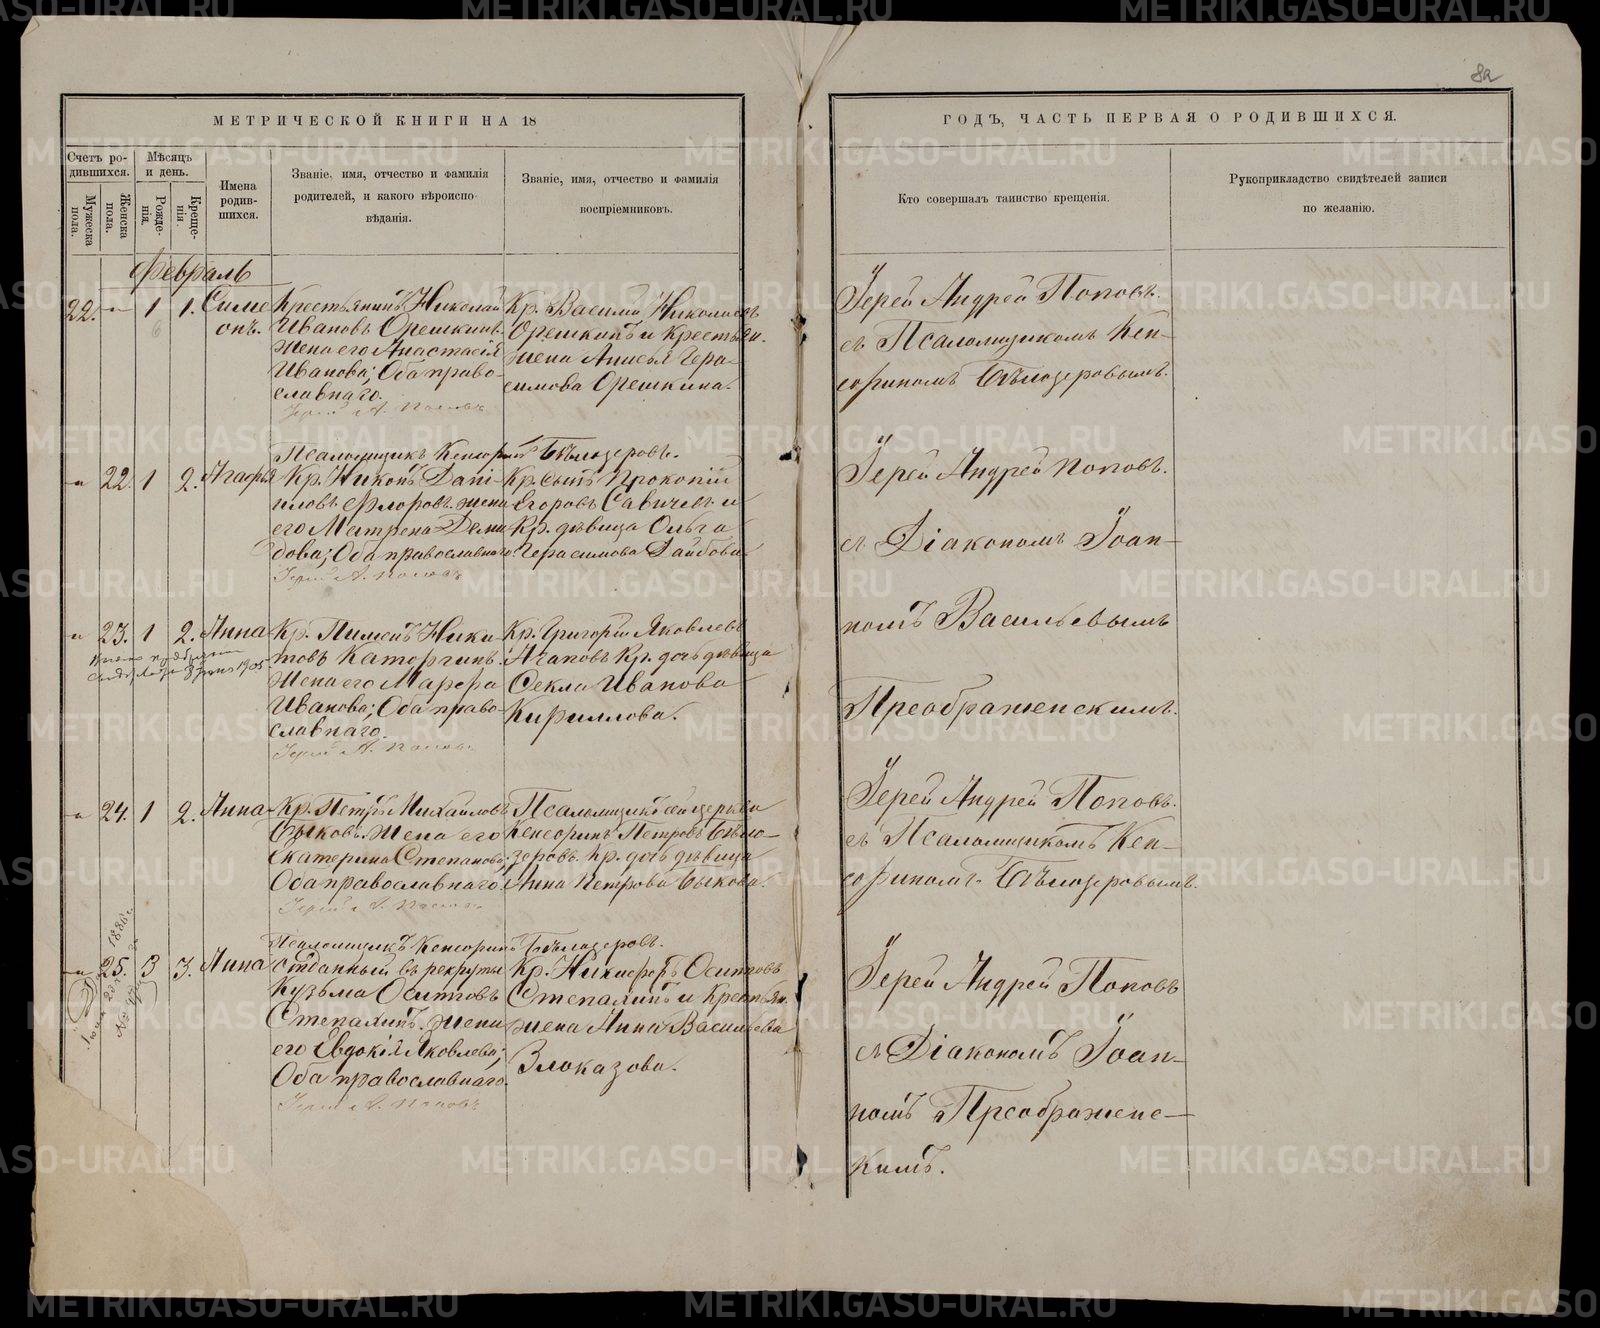 82
МЕТРИЧЕСКОЙ КНИГИ НА 18
ГОДЪ, ЧАСТЬ ПЕРВАЯ О РОДИВШИХСЯ.
Счетъ ро-
дившихся.
Мужеска
пола.
Женска
пола.
Мѣсяцъ
и день.
Рожде-
нія.
Креще-
нія.
Имена
родив-
шихся.
Званіе, имя, отчество и фамилія
родителей, и какого вѣроиспо-
вѣданія.
Званіе, имя, отчество и фамилія
воспріемниковъ.
Кто совершалъ таинство крещенія.
Рукоприкладство свидѣтелей записи
по желанію.
Февраль
22. 1 1. Симе
онъ.
Крестьянинъ Николай
Ивановъ Орешкинъ.
Жена его Анастасія
Иванова; Оба право-
славнаго.
Іерей А. Поповъ
Кр. Василій Николаевъ
Орешкинъ и Крестьян.
жена Анисья Гера-
симова Орешкина.
Іерей Андрей Поповъ.
съ Псаломщикомъ Кен-
сориномъ Бѣлозеровымъ.
Псаломщикъ Кенсоринъ Бѣлозеровъ.
22. 1 2. Агафья
Кр. Никонъ Дані-
иловъ Флоровъ. жена
его Матрена Деми
дова; Оба православнаго.
Іерей А. Поповъ
Кр. сынъ Прокопій
Егоровъ Савичевъ и
Кр. дѣвица Ольга
Герасимова
Іерей Андрей Поповъ.
съ Діакономъ Іоан-
номъ Васильевымъ
Преображенскимъ.
23. 1 2. Анна
1905
Кр. Пименъ Ники-
товъ Каторгинъ.
Жена его Марфа
Иванова; Оба право-
славнаго.
Іерей А. Поповъ
Кр. Григорій Яковлевъ
Агаповъ Кр. дочь дѣвица
Ѳекла Иванова
Кириллова.
24. 1 2. Анна
Кр. Петръ Михайловъ
Быковъ. Жена его
Екатерина Степанова;
Оба православнаго
Іерей А. Поповъ
Псаломщикъ сей церкви
Кенсоринъ Петровъ Бѣло-
зеровъ. Кр. дочь дѣвица
Анна Петрова Быкова.
Іерей Андрей Поповъ.
съ Псаломщикомъ Кен-
сориномъ Бѣлозеровымъ.
Псаломщикъ Кенсоринъ Бѣлозеровъ.
25. 3 3. Анна
Отданный въ рекруты
Кузьма Осиповъ
Степахинъ. Жена
его Евдокія Яковлева;
Оба православнаго.
Іерей А. Поповъ
Кр. Никифоръ Осиповъ
Степахинъ и Крестьян.
жена Анна Васильева
Злоказова.
Іерей Андрей Поповъ
съ Діакономъ Іоан-
номъ Преображенс-
кимъ.
METRIKI.GASO-URAL.RU